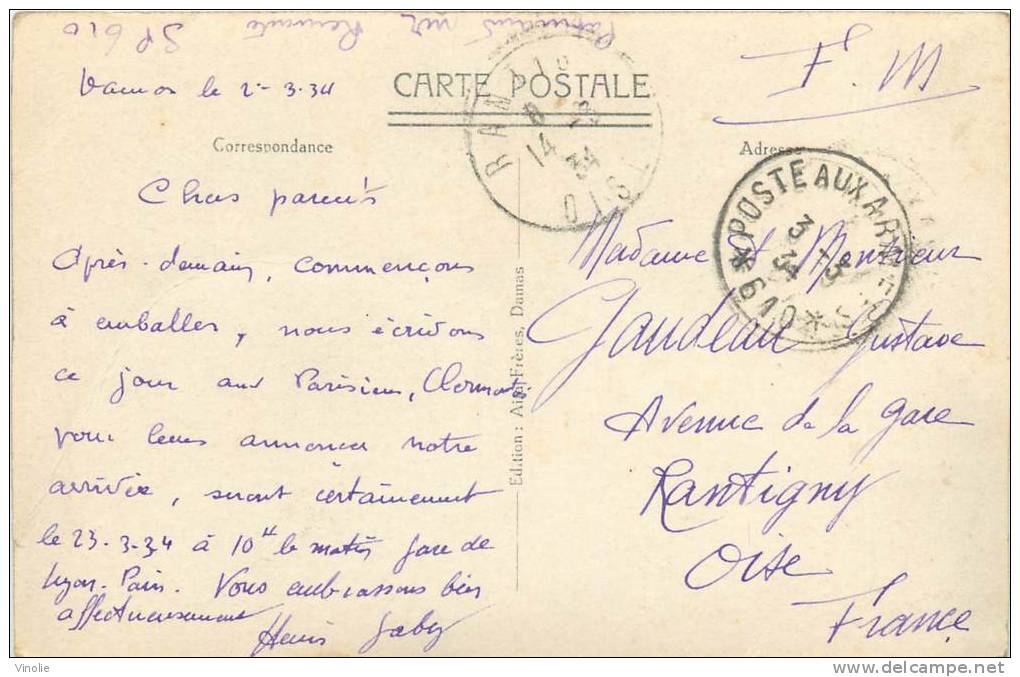 SP 610
CARTE POSTALE
Damas le 2-3.34
F. M
Correspondance
Adresse
RANTIGNY
OISE
14
POSTE AUX ARMÉES
3 -3
34
* 610 *
Chers parents
Après-demain, commençons
à emballer, nous écrivons
ce jour aux Parisiens, Clermont,
pour leurs annoncer notre
arrivée, seront certainement
le 23.3.34 à 10H le matin gare de
Lyon. Paris. Vous embrassons bien
affectueusement
Henri Gaby
Edition: Frères, Damas
Madame et Monsieur
Gaudeau Gustave
Avenue de la gare
Rantigny
Oise
France
Vinolie
delcampe.net